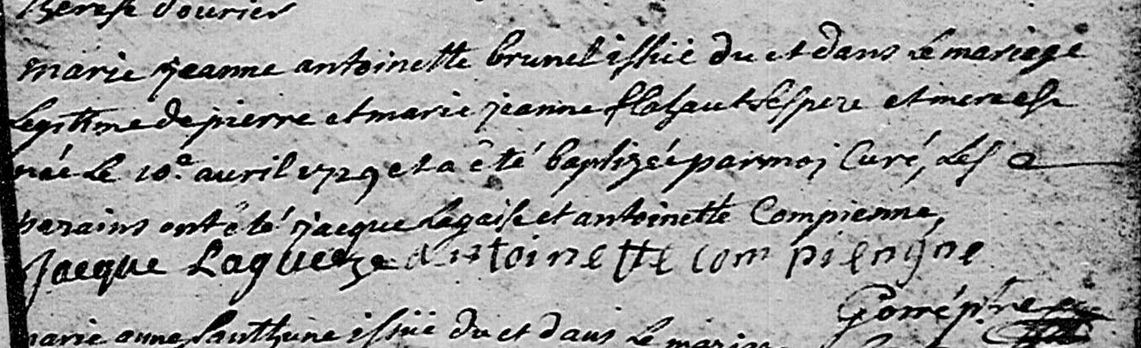 marie jeanne antoinette brunel issüe du et dans Le mariage
Legitime de pierre et marie jeanne flahaut Ses pere et mere est
née Le 10.e avril 1729 et a été baptizée par moj Curé, Les
parains ont été jacque Legaise et antoinette Compienne,
Jacque Lagueze Antoinette compiengne
Gorré ptre
marie anne issüe du et dans Le mariage